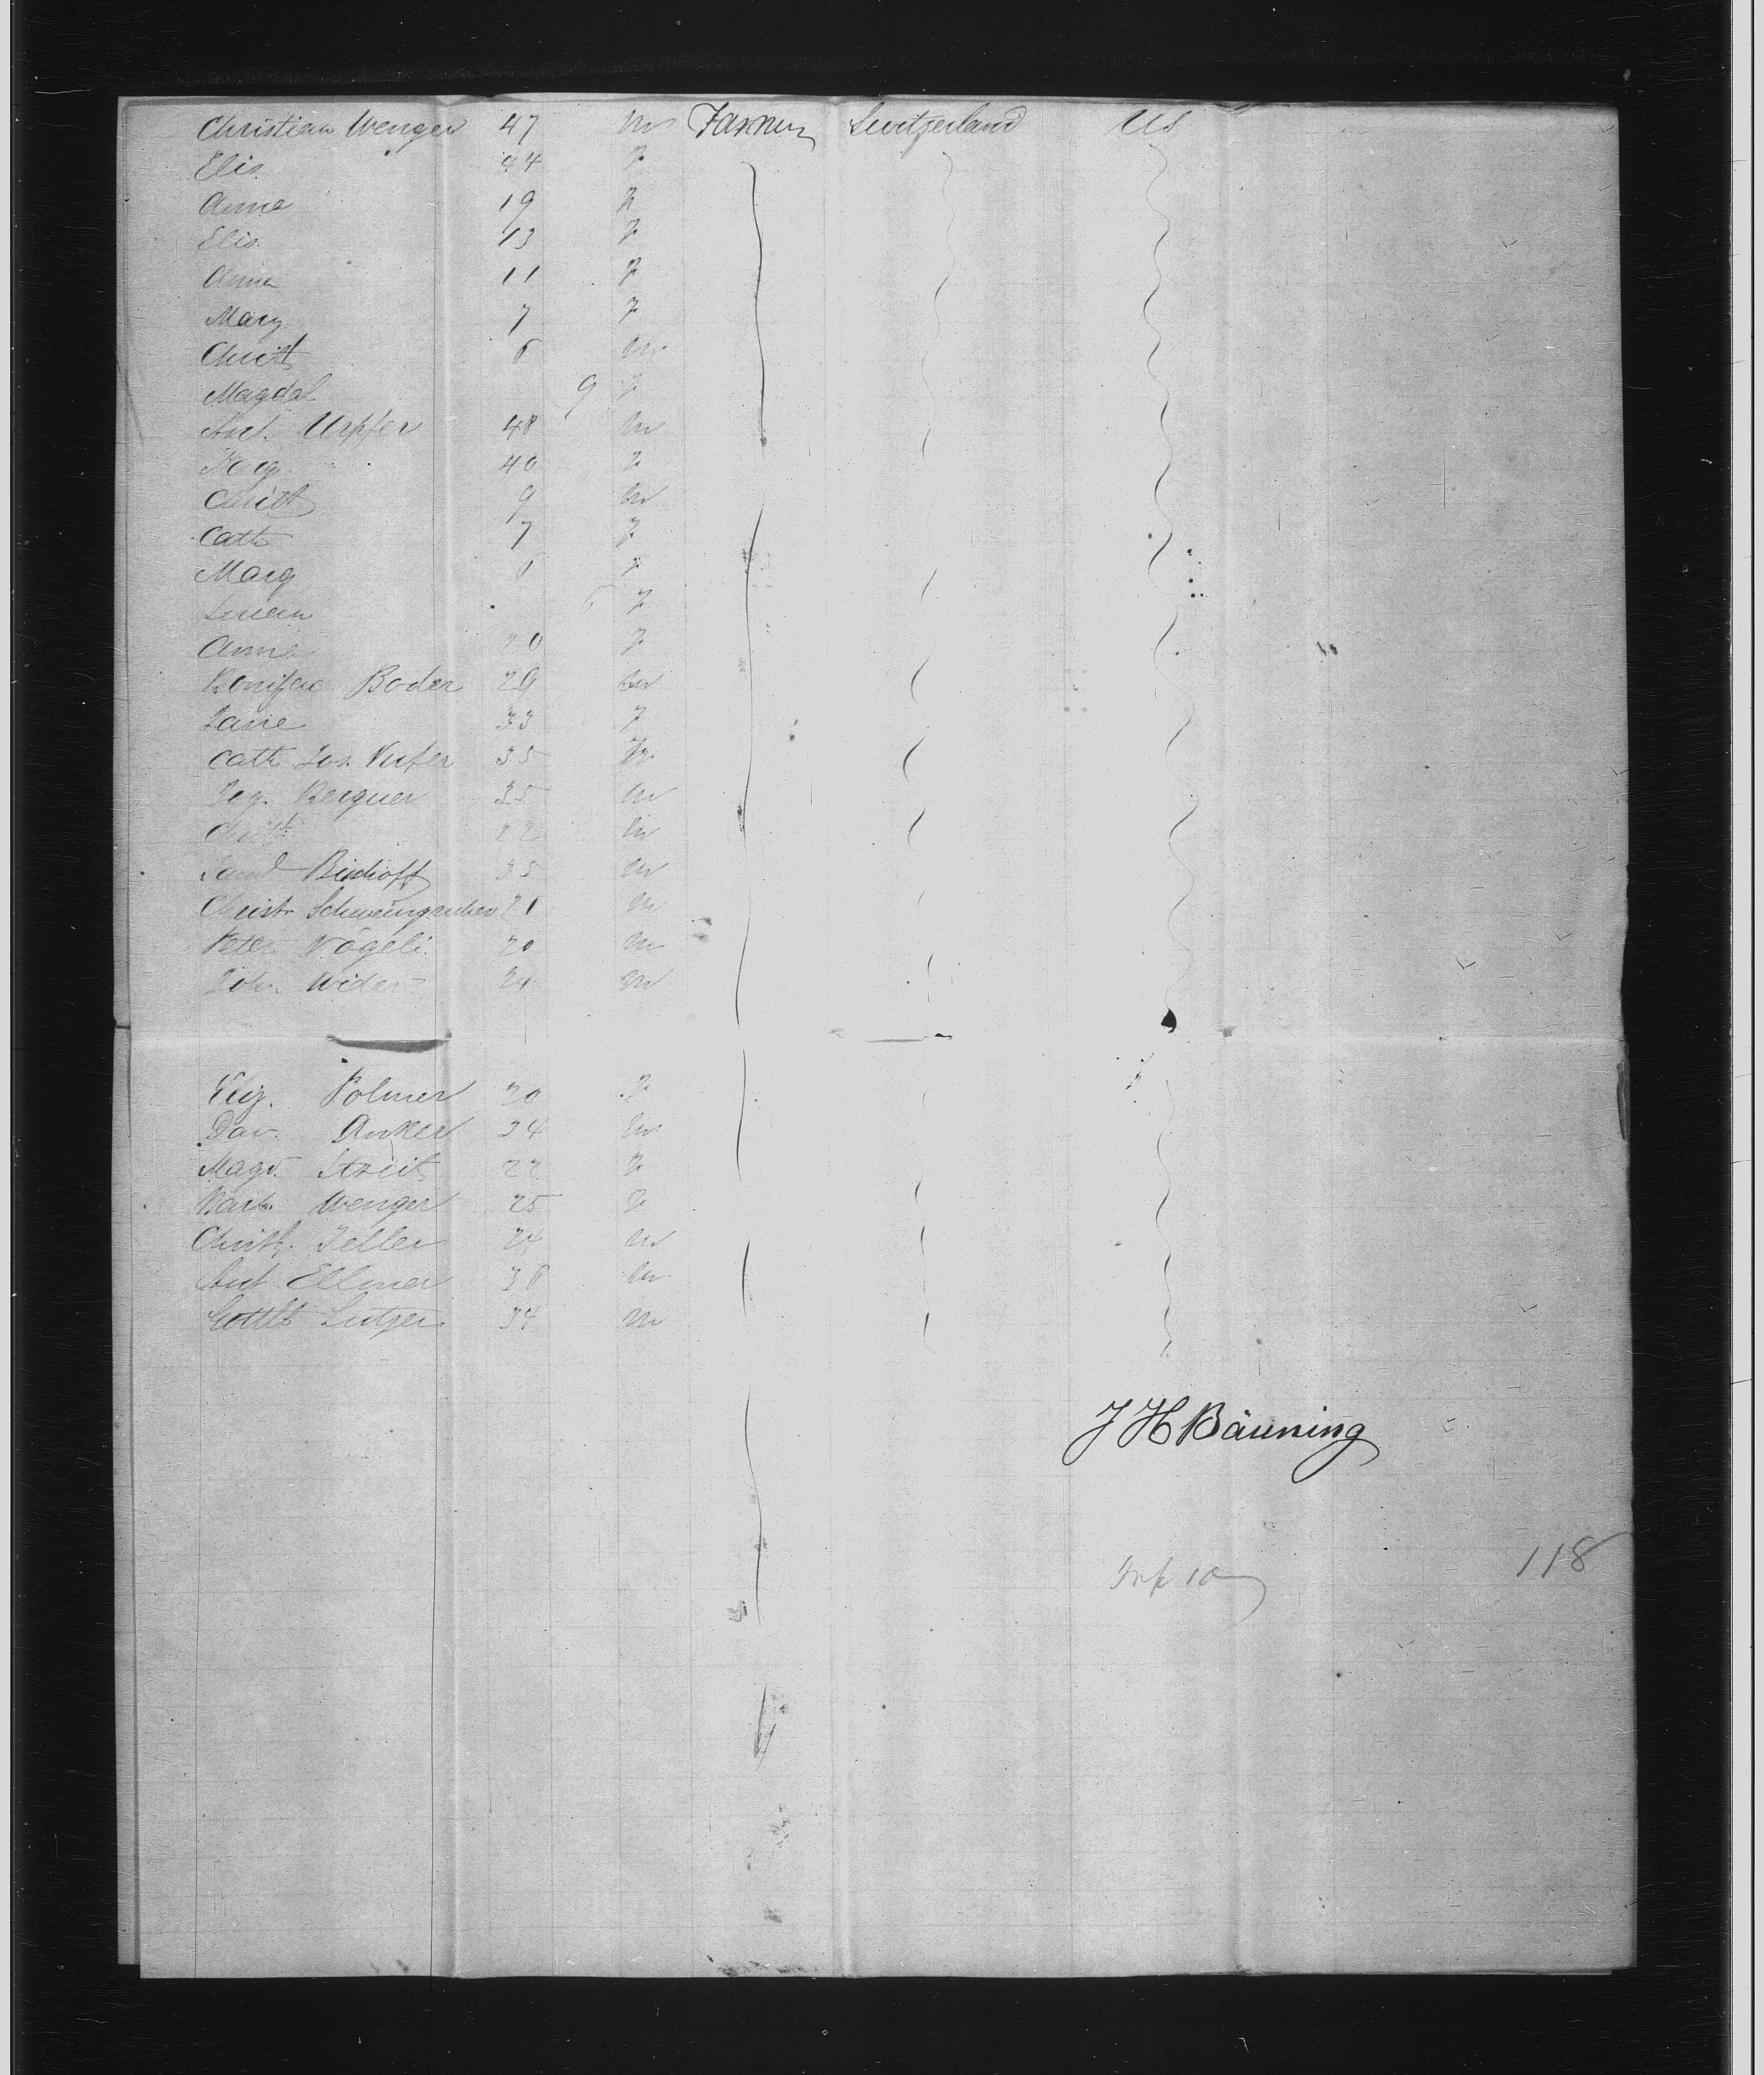 Christian Wenger 47 m Farmer Switzerland US
Elis. 44 f
Anna 19 f
Elis. 13 f
Anna 11 f
Marg 7 f
Christ 6 m
Magdal 9 f
48 m
Marg 40 f
Christ 9 m
Cath 7 f
Marg 6 f
6 f
Anna 20 f
Bonifac Boder 29 m
33 f
Cath Jos. 35
35 m
Christ 22 m
Saml Bischoff 35 m
Christ Schweingruber 21 m
Peter Vögeli 20 m
Joh. Wider 24 m
Eliz. 20 f
Dav. Anker 34 m
Magd. Streit 22 f
Barb. Wenger 25 f
Christ. Zeller 24 m
Ellmer 36 m
Gottlb 34 m
J H Bäuning
Inf 10
118